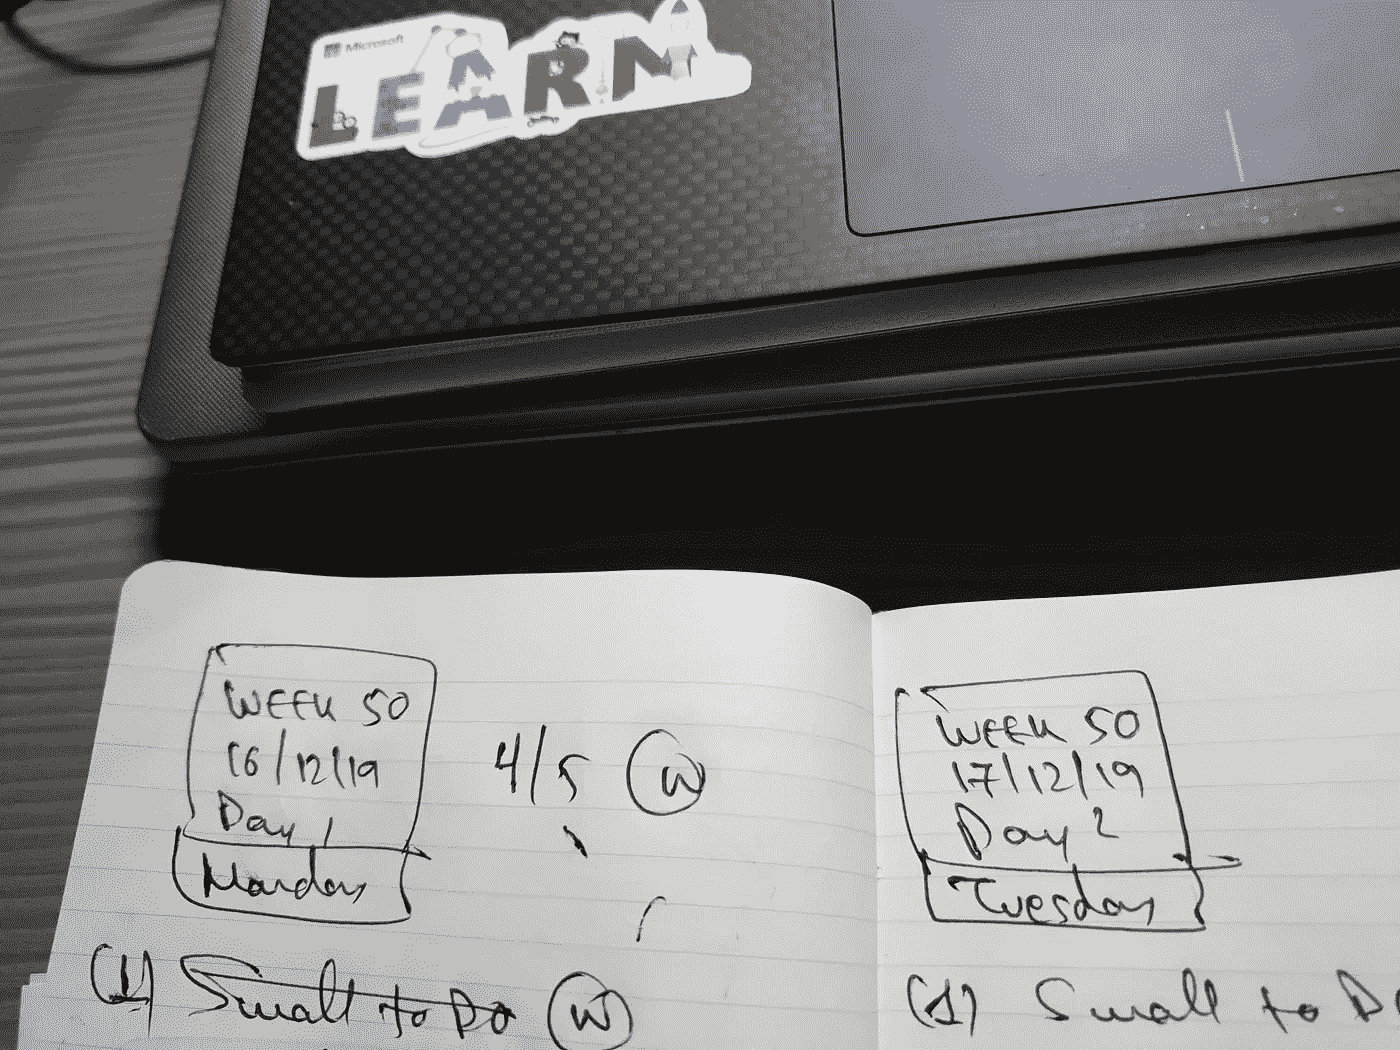 Microsoft
LEARN
WEEK 50
16/12/19
Day 1
Monday
4/5 W
(1) Small to Do W
WEEK 50
17/12/19
Day 2
Tuesday
(1) Small to Do